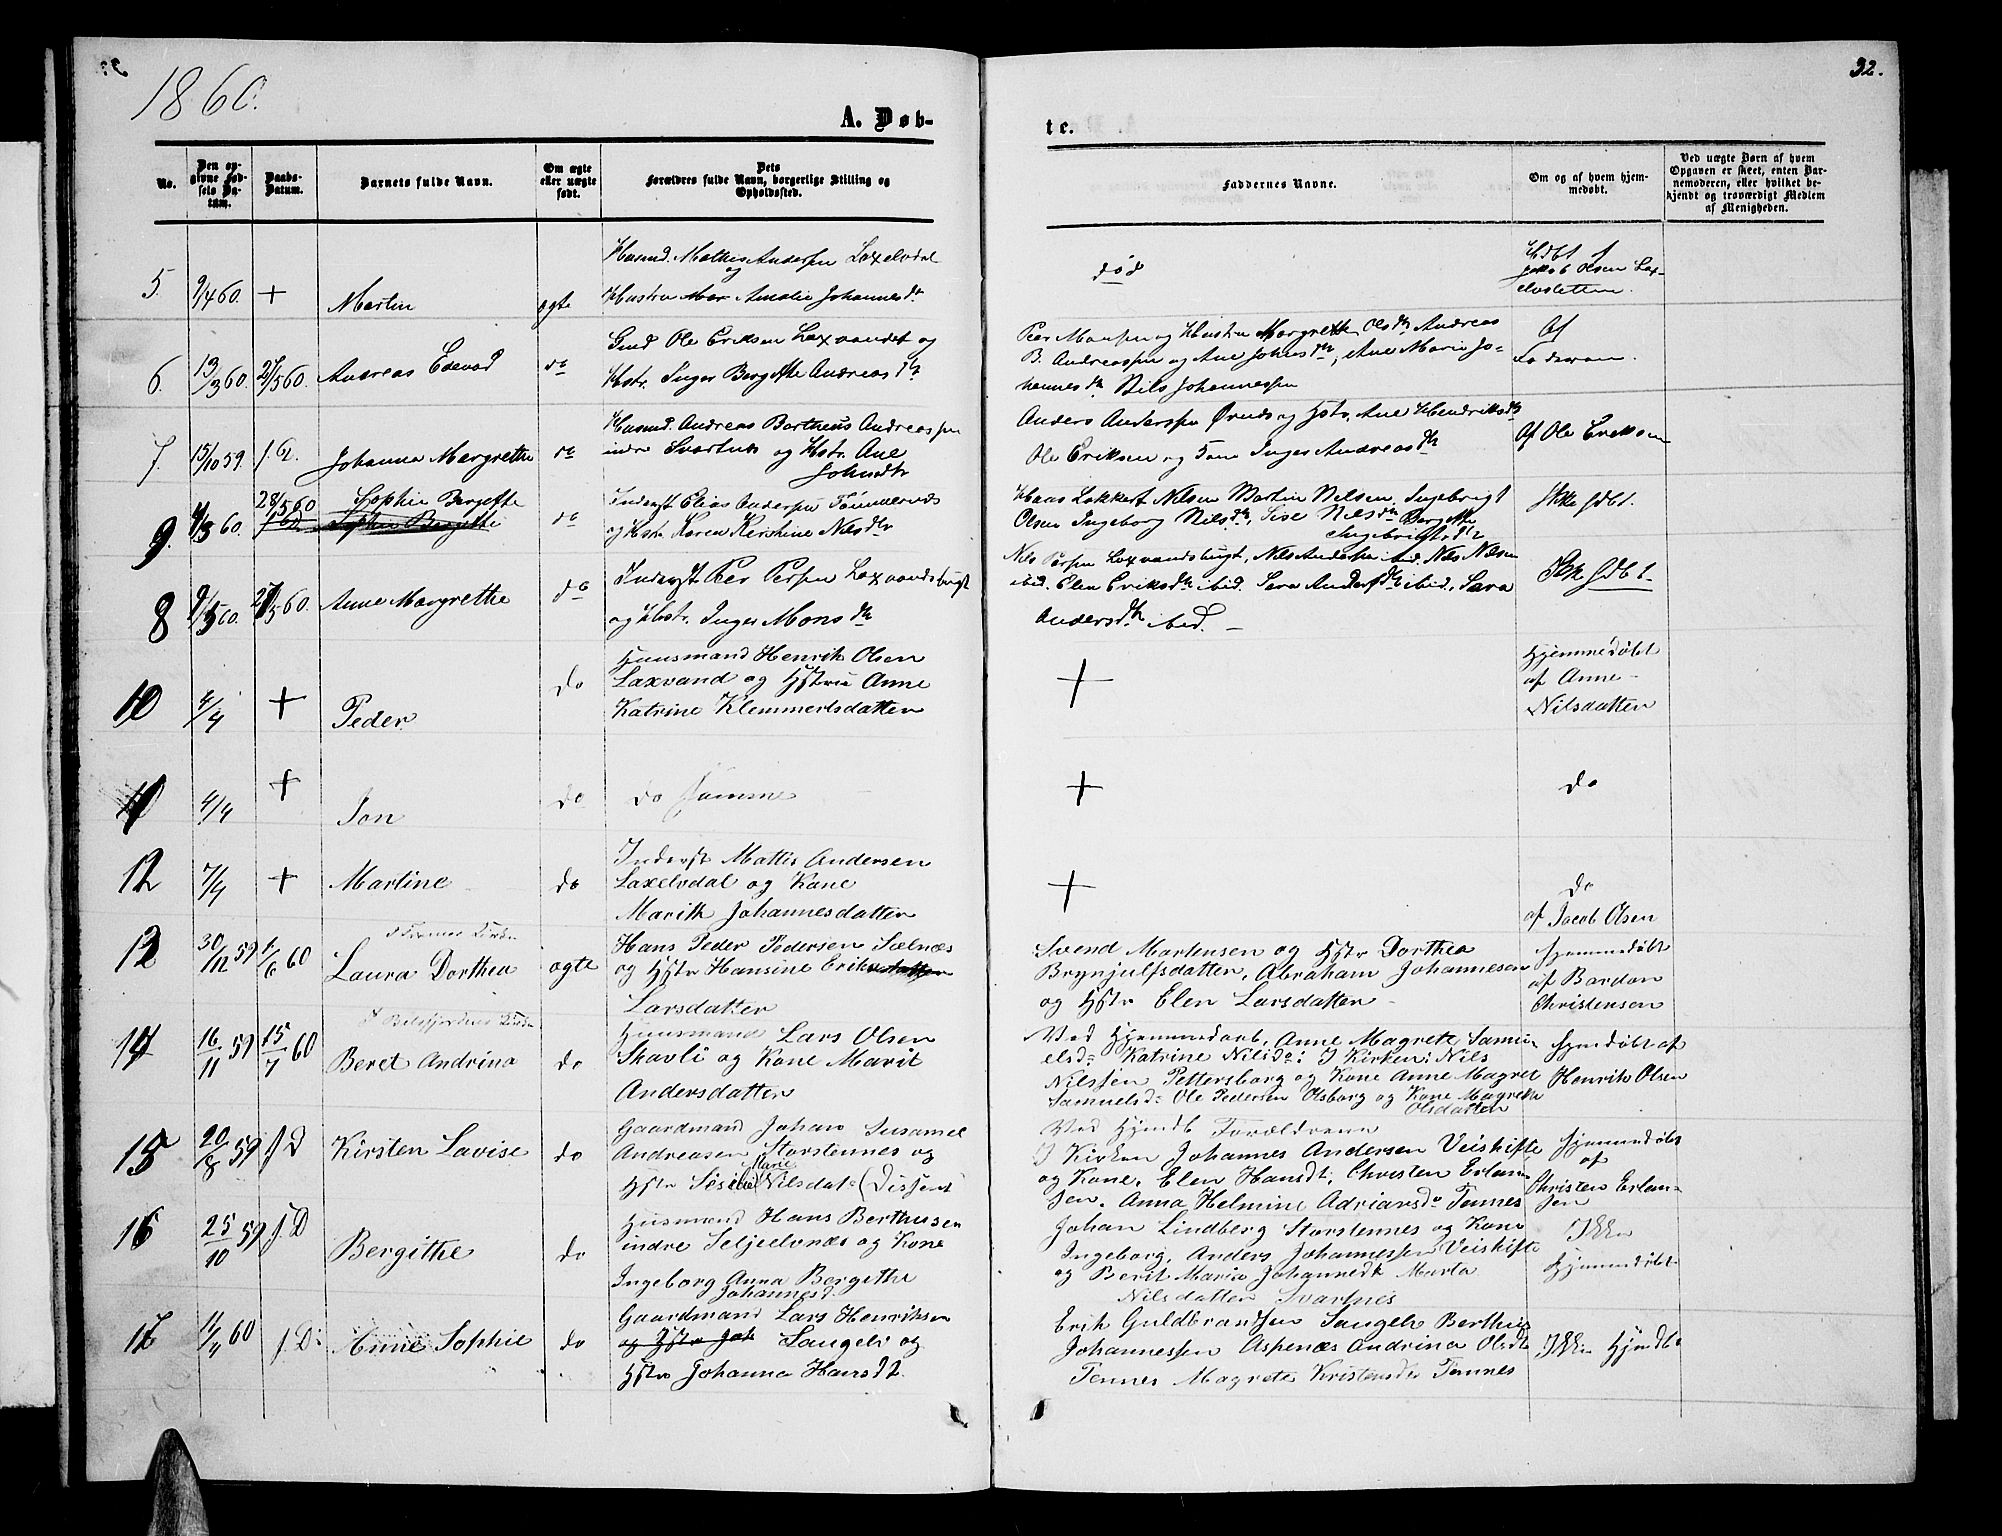 1860.
32.
A. Døb-
te.
No.
Den opgivne Fødsels Datum.
Daabs-Datum.
Barnets fulde Navn.
Om ægte eller uægte født.
Dets Forældres fulde Navn, borgerlige Stilling og Opholdssted.
Faddernes Navne.
Om og af hvem hjemmedøbt.
Ved uægte Børn af hvem Opgaven er skeet, enten Barnemoderen, eller hvilket bekjendt og troværdigt Medlem af Menigheden.
5. 9/4 60. + Martin ægte
Husmd. Mathis Andersen Laxelvdal
og
Hustru Mar Amalie Johannesdr
død
Hdbt
Jakob Olsen Lax-
elvsletten.
6. 13/3 60. 27/5 60. Andreas Edevard do
Gmd Ole Eriksen Laxvandet og
Hstr. Inger Bergitte Andreasdtr
Peer Monsen og Hustru Margrethe Olsdtr Andreas
B. Andreassen og Ane Johnsdtr, Ane Marie Jo-
hannesdtr Nils Johannessen
Af
Faderen.
7. 15/10 59. f. G. Johanna Margrethe do
Husmd. Andreas Bartheus Andreassen
indre Svartnes og Hstr. Ane
Johnsdtr
Anders Andersen Øvnds og Hstr. Ane Hendriksdtr
Ole Eriksen og Inger Andreasdtr
Af Ole Eriksen
9. 4/3 60. 28/5 60 Sophie Bergitte do
Sophie Bergitte
Inderst Elias Andersen Tømmernæs
og Hstr. Karen Kirstine Nilsdtr
Hans Lokkert Nilsen Martin Nilsen, Ingebrigt
Olsen Ingeborg Nilsdtr, Sise Nilsdtr Bergitte
Ingebrigtsdtr
Ikke hdbt.
8 9/5 60. 27/5 60. Anne Margrethe do
Inderst Peer Persen Laxvandsbugt
og Hstr. Inger Monsdtr
Nils Persen Laxvandsbugt, Nils Andersen ibid. Nils Nilsen
ibid. Elen Eriksdtr ibid. Sara Andersdtr ibid. Sara
Andersdtr ibid.
Ikk hdbt
10 4/4 + Peder do
Huusmand Henrik Olsen
Laxvand og Hstru Anne
Katrine Klemmertsdatter
+
Hjemmedøbt
af Anne
Nilsdatter
11 4/4 + Jon do
do samme
+
do
12 7/4 + Martine do
Inderst Mattis Andersen
Laxelvdal og Kone
Marith Johannesdatter
+
do
af Jacob Olsen
13 30/12 59 1/6 60 Laura Dorthea ægte
Hans Peder Pedersen Sælnæs
og Hstr Hansine Eriksdatter
Larsdatter
Svend Martensen og Hstr Dorthea
Brynjulfsdatter, Abraham Johannesen
og Hstr Elen Larsdatter
Hjemmedøbt
af Bardon
Christensen
14 16/11 59 15/7 60 Beret Andrina do
I Balsfjordens Kirke
Huusmand Lars Olsen
Skavli og Kone Marit
Andersdatter
Ved Hjemmedaab, Anne Magrete Samu-
elsd: Katrine Nilsd: I Kirken: Nils
Nilssen Pettersborg og Kone Anne Magret
Samuelsd: Ole Pedersen Olsborg og Kone Magreta
Olsdatter
Hjemdøbt af
Henrik Olsen
15 20/8 59 f. D Kirsten Lavise do
Gaardmand Johan Susamel
Andreasen Storstennes og
Marie
Hstr Nilsdat (Dissent
Ved Hjemdb Forældrene
I Kirken Johannes Andersen Veiskifte
og Kone, Elen Hansdt, Christen Erlan-
sen. Anna Helmine Adriansd: Tennes
Hjemmedøbt
af
Christen Erlan-
sen
16 25/10 59 f. D Bergithe do
Husmand Hans Berthusen
indre Seljeelvnæs og Kone
Ingeborg Anna Bergithe
Johannesd
Johan Lindberg Storstennes og Kone
Ingeborg, Anders Johannessen Veiskifte
og Berit Maria Johannesdt Marta
Nilsdatter Svartnes
Ikke
Hjemmedøbt
17 11/4 60 f. D. Anne Sophie do
Gaardmand Lars Henriksen
og Hstr Joh Sangelv og
Hstr Johanna Hansdt.
Erik Guldbrandsen Sangelv Berthus
Johannessen Aspenæs Andrina Olsdt
Tennes Magrete Kristensdr Tennes
Ikke Hjmdbt